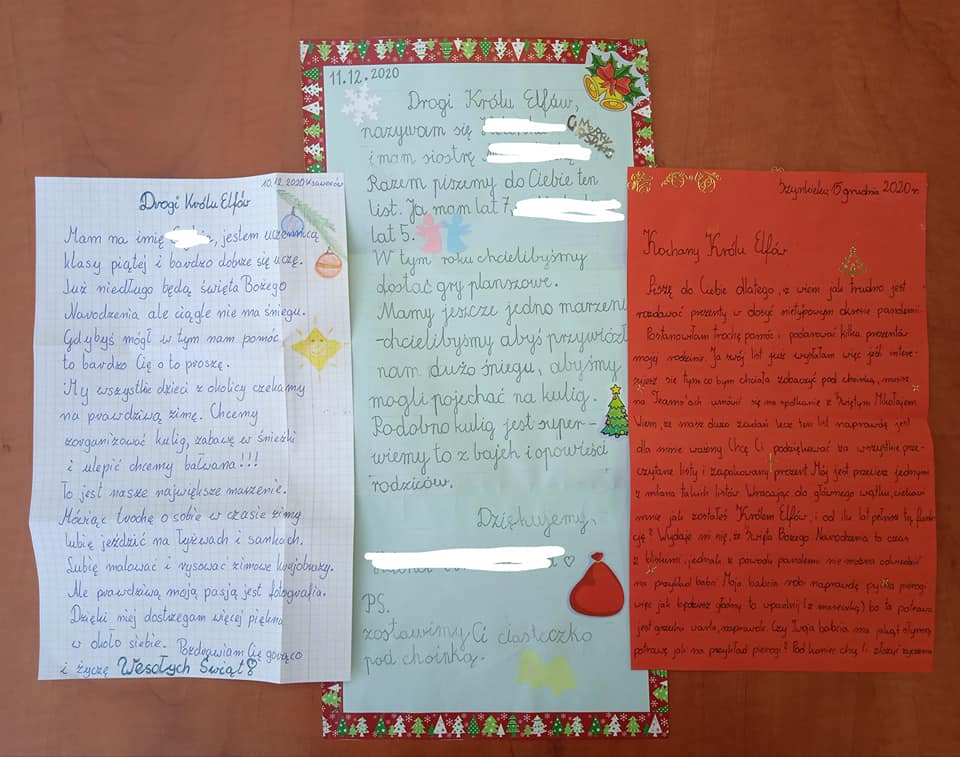 10.12.2020 Ksawerów
Drogi Królu Elfów
Mam na imię, jestem uczennicą
klasy piątej i bardzo dobrze się uczę.
Już niedługo będą święta Bożego
Narodzenia ale ciągle nie ma śniegu.
Gdybyś mógł w tym nam pomóc
to bardzo Cię o to proszę.
My wszystkie dzieci z okolicy czekamy
na prawdziwą zimę. Chcemy
zorganizować kulig, zabawę w śnieżki
i ulepić chcemy bałwana!!!
To jest nasze największe marzenie.
Mówiąc trochę o sobie w czasie zimy
lubię jeździć na łyżwach i sankach.
Lubię malować i rysować zimowe krajobrazy.
Ale prawdziwą moją pasją jest fotografia.
Dzięki niej dostrzegam więcej piękna
w około siebie. Pozdrawiam Cię gorąco
i życzę Wesołych Świąt!
11.12.2020
Drogi Królu Elfów,
nazywam się
Merry Christmas
i mam siostrę
Razem piszemy do Ciebie ten
list. Ja mam lat 7,
lat 5.
W tym roku chcielibyśmy
dostać gry planszowe.
Mamy jeszcze jedno marzeni
-chcielibyśmy abyś przywiózł
nam dużo śniegu, abyśmy
mogli pojechać na kulig.
Podobno kulig jest super-
wiemy to z bajek i opowieści
rodziców.
Dziękujemy,
PS.
zostawimy Ci ciasteczko
pod choinką.
15 grudnia 2020 r.
Kochany Królu Elfów
Piszę do Ciebie dlatego, iż wiem jak trudno jest
rozdawać prezenty w dosyć nietypowym okresie pandemii.
Postanowiłam trochę pomóc i podarować kilka prezentów
mojej rodzinie. Ja swój list już wysłałam więc jeśli intere-
sujesz się tym co bym chciała zobaczyć pod choinką, musisz
na Teams'ach umówić się na spotkanie z Świętym Mikołajem.
Wiem, że masz dużo zadań lecz ten list naprawdę jest
dla mnie ważny. Chcę Ci podziękować za wszystkie prze-
czytane listy i zapakowany prezent. Mój jest przecież jednym
z miliona takich listów. Wracając do głównego wątku, ciekawi
mnie jak zostałeś Królem Elfów, i od ilu lat pełnisz tą funk-
cję? Wydaje mi się, że Święta Bożego Narodzenia to czas
z bliskimi, jednak z powodu pandemii nie można odwiedzić
na przykład babci. Moja babcia robi naprawdę pyszne pierogi
więc jak będziesz głodny to upoluj (z maseczką) bo ta potrawa
jest grzechu warta, naprawdę. Czy Twoja babcia ma jakąś słynną
potrawę jak na przykład pierogi? Pod koniec chcę Ci złożyć życzenia